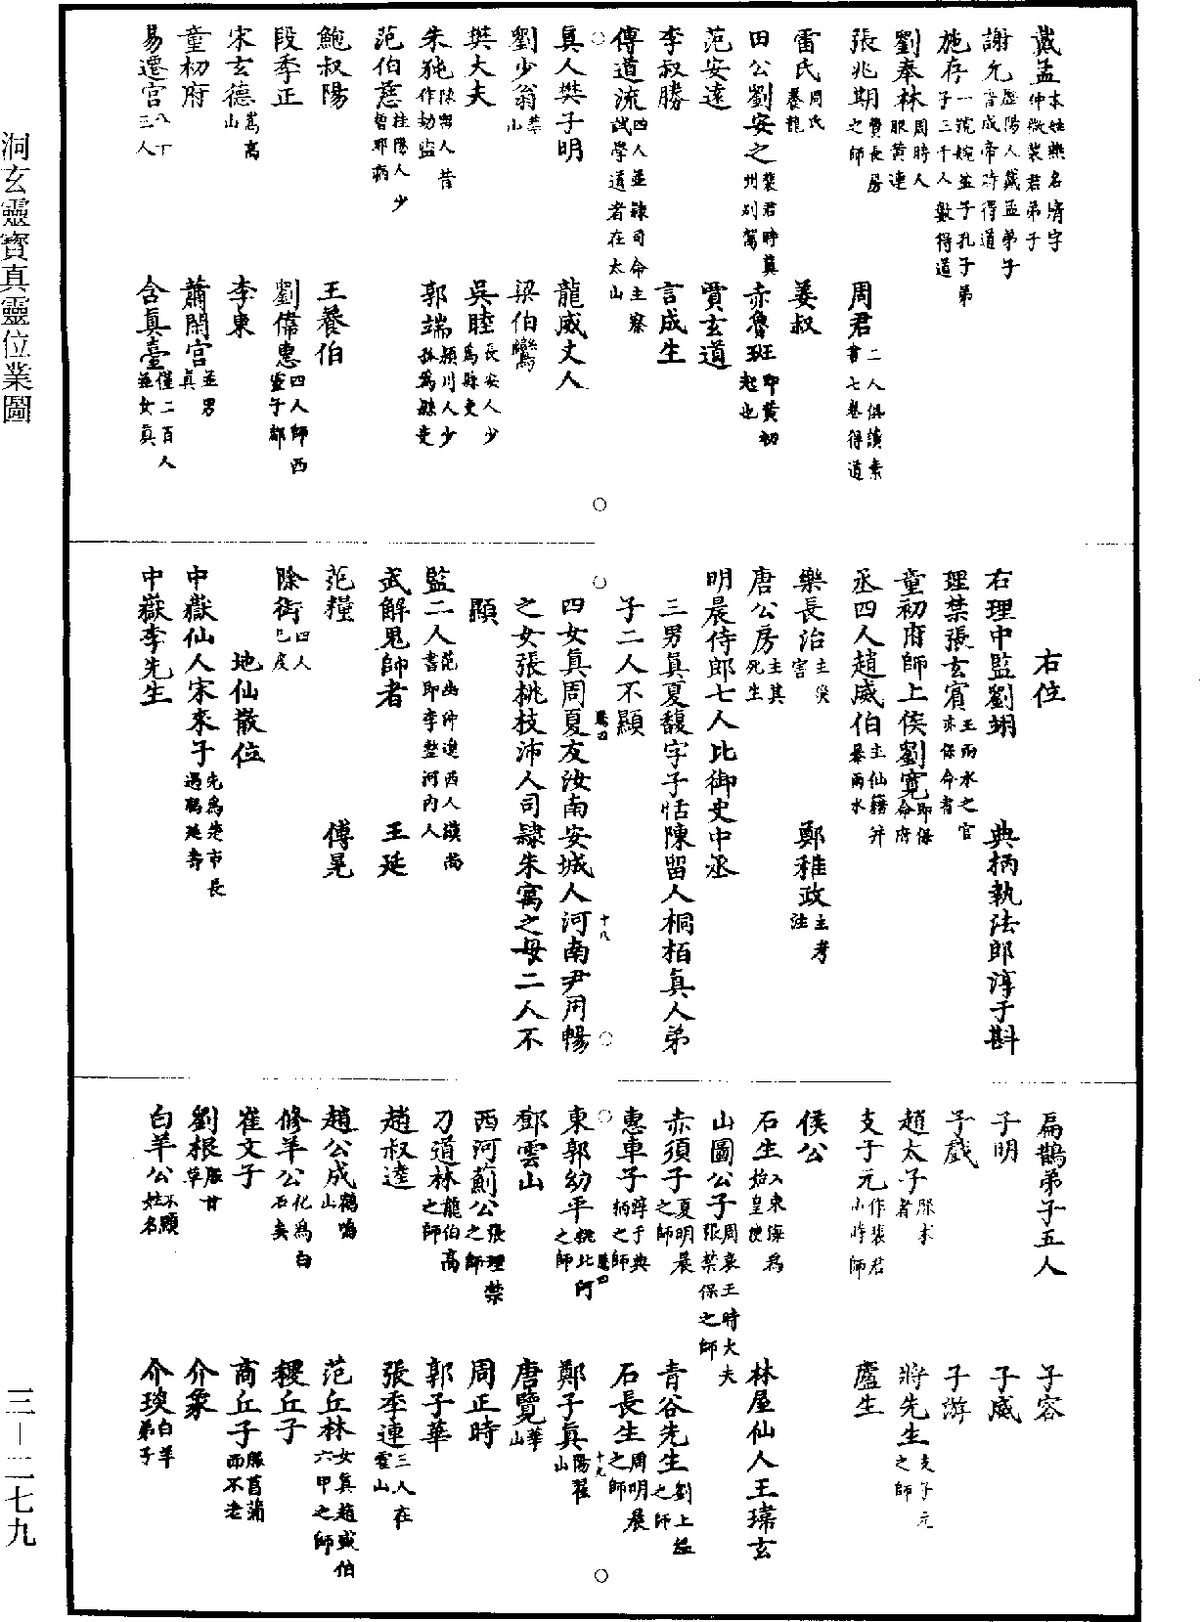 戴孟本姓燕名濟字仲微裴君弟子
謝允歷陽人戴孟弟子晉成帝時得道
施存一號婉盆子孔子弟子三千人數得道
劉奉林周時人服黃連
張兆期費長房之師　周君二人俱讀素書七卷得道
雷氏周氏養龍　姜叔
田公劉安之裴君時冀州別駕　赤魯班即黃初起也
范安遠　賈玄道
李叔勝　言成生
傅道流四人並隸司命主察試學道者在太山
真人樊子明　龍威丈人
劉少翁華山　梁伯鸞
樊大夫　吳睦長安人少為縣吏
朱純陳留人昔作劫盜　郭端潁川人少孤為縣吏
范伯慈桂陽人少曾邪病
鮑叔陽　王養伯
段季正　劉偉惠四人師西靈子都
宋玄德嵩高山　李東
童初府　蕭閑宮並男真
易遷宮八十三人　含真臺僅二百人並女真
右位
右理中監劉翊　典柄執法郎淳于斟
理禁張玄賓主雨水之官亦保命者
童初府師上侯劉寬即保命府
丞四人趙威伯主仙籍并暴雨水
樂長治主災害　鄭稚政主考注
唐公房主其死生
明晨侍郎七人比御史中丞
三男真夏馥字子恬陳留人桐柏真人弟
子二人不顯
四女真周夏友汝南安城人河南尹周暢
之女張桃枝沛人司隸朱寓之母二人不
顯
監二人范幽仲遼西人漢尚書郎李整河內人
武解鬼帥者　王延
范糧　傅晃
除衒四人已度
地仙散位
中嶽仙人宋來子先為楚市長遇馮延壽
中嶽李先生
扁鵲弟子五人　子容
子明　子威
子戲　子游
趙太子服朮者　蔣先生支子元之師
支子元作裴君小時師　盧生
侯公
石生入東海為始皇使　林屋仙人王瑋玄
山圖公子周哀王時大夫張禁保之師
赤須子夏明晨之師　青谷先生劉上越之師
惠車子淳于典柄之師　石長生周明晨之師
東郭幼平桃北河之師　鄭子真陽翟山
鄧雲山　唐覽華山
西河薊公張理禁之師　周正時
刀道林龍伯高之師　郭子華
趙叔達　張季連三人在霍山
趙公成鶴鳴山　范丘林女真趙威伯六甲之師
修羊公化為白石矣　稷丘子
崔文子　商丘子服菖蒲而不老
劉根服甘草　介象
白羊公不顯姓名　介琰白羊弟子
洞玄靈寶真靈位業圖
三－二七九